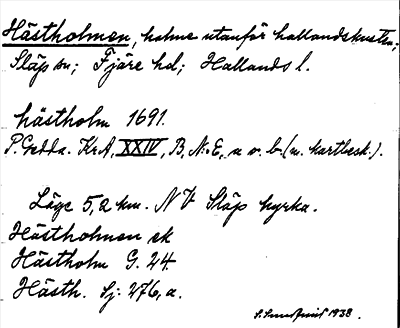 Hästholmen, holme utanför hallandskusten;
Släp sn; Fjäre hd; Hallands l.
hästholm 1691.
P. Gedda. KrA, XXIV, B, N:E, u o. b. (u. kartbesk.).
Läge 5,2 km. NV Släp kyrka.
Hästholmen ek
Hästholm G. 24.
Hästh. Sj: 276, a.
1938.